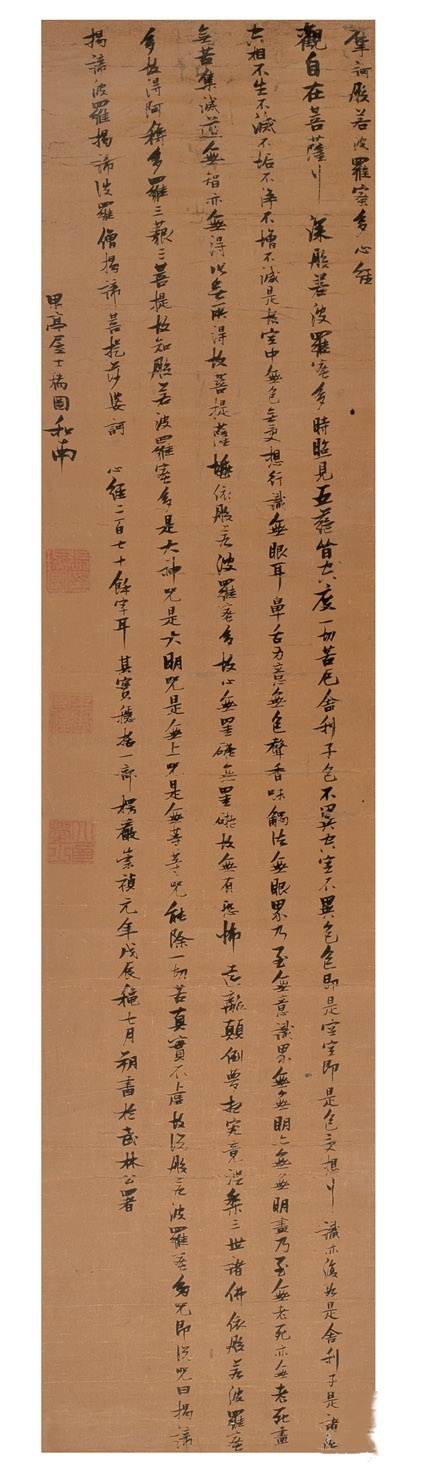 摩訶般若波羅蜜多心経
觀自在菩薩行深般若波羅蜜多時照見五蘊皆空度一切苦厄舍利子色不異空空不異色色即是空空即是色受想行識亦復如是舍利子是諸法
空相不生不滅不垢不淨不增不減是故空中無色無受想行識無眼耳鼻舌身意無色聲香味觸法無眼界乃至無意識界無無明亦無無明盡乃至無老死亦無老死盡
無苦集滅道無智亦無得以無所得故菩提薩埵依般若波羅蜜多故心無罣礙無罣礙故無有恐怖遠離顛倒夢想究竟涅槃三世諸佛依般若波羅蜜
多故得阿耨多羅三藐三菩提故知般若波羅蜜多是大神咒是大明咒是無上咒是無等等咒能除一切苦真實不虛故說般若波羅蜜多咒即說咒曰揭諦
揭諦波羅揭諦波羅僧揭諦菩提莎婆訶 心経二百七十餘字耳其實穩括一部楞嚴崇禎元年戊辰穐七月朔書於武林公署
果亭居士瑞圖和南